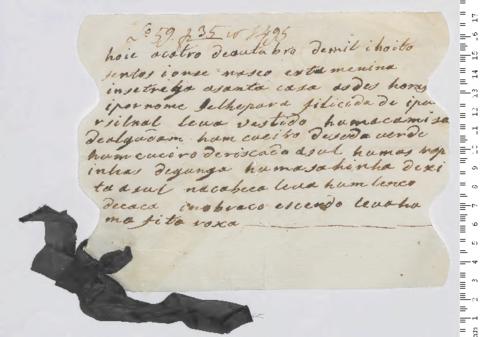 Lo 59 f 35 nº 1495
hoie coatro deoutubro demil ihoito
sentos ionse nasco exta menina
insetrega asanta casa asdes horas
ipornome selhepora filicida de ipor
silnal leva vestido humacamiza
dealgudam hum cueiro deseda verde
hum cueiro deriscado asul humas rop
inhas deganga humasahinha dexi
ta asul nacabeca leva hum lenco
decaca inobraco escerdo leva hu
ma fita roxa